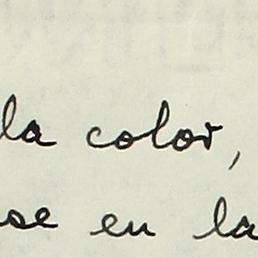 la color,
se en la